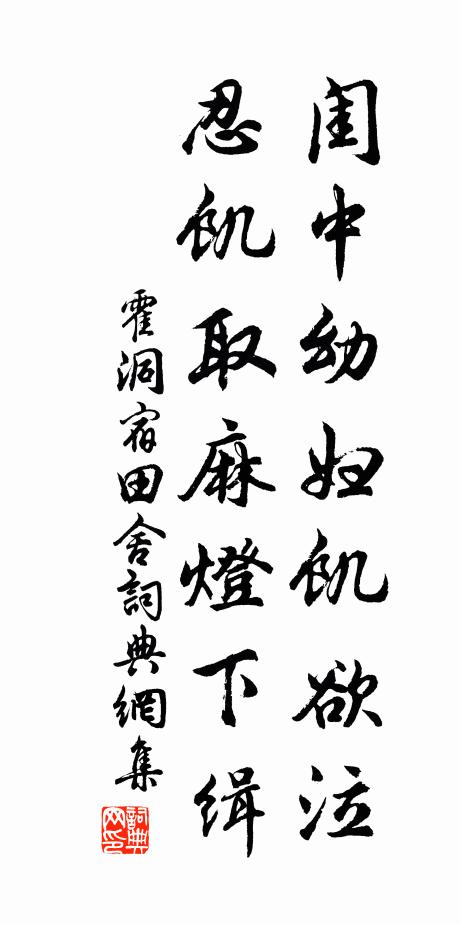 闺中幼妇飢欲泣
忍飢取麻燈下缉
霍洞宿田舍詞典網集
詞典网印